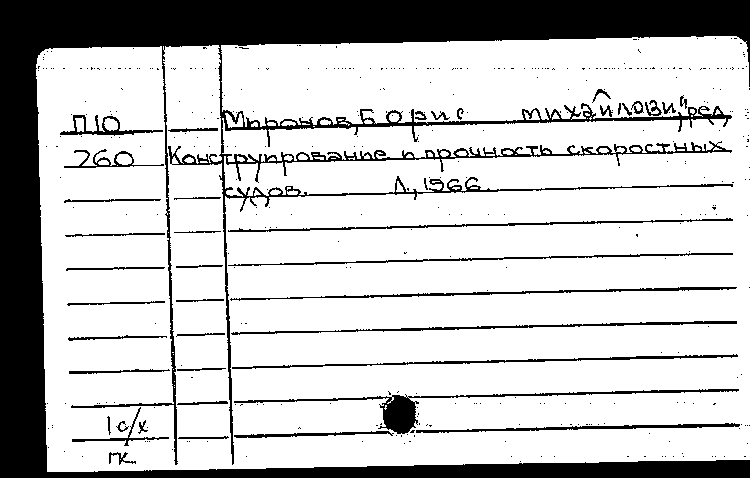 П10 Миронов, Борис Михайлович, ред.
260 Конструирование и прочность скоростных
судов. Л, 1966.
1 с/х
ГК.